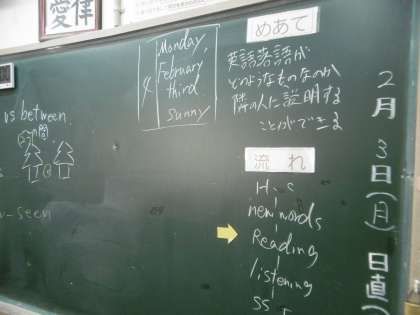 愛律
Monday,
February
third
sunny
めあて
英語落語が
どのようなものなのか
隣の人に説明する
ことができる
2月3日(月)日直
流れ
new words
Reading
listening
vs between
seen